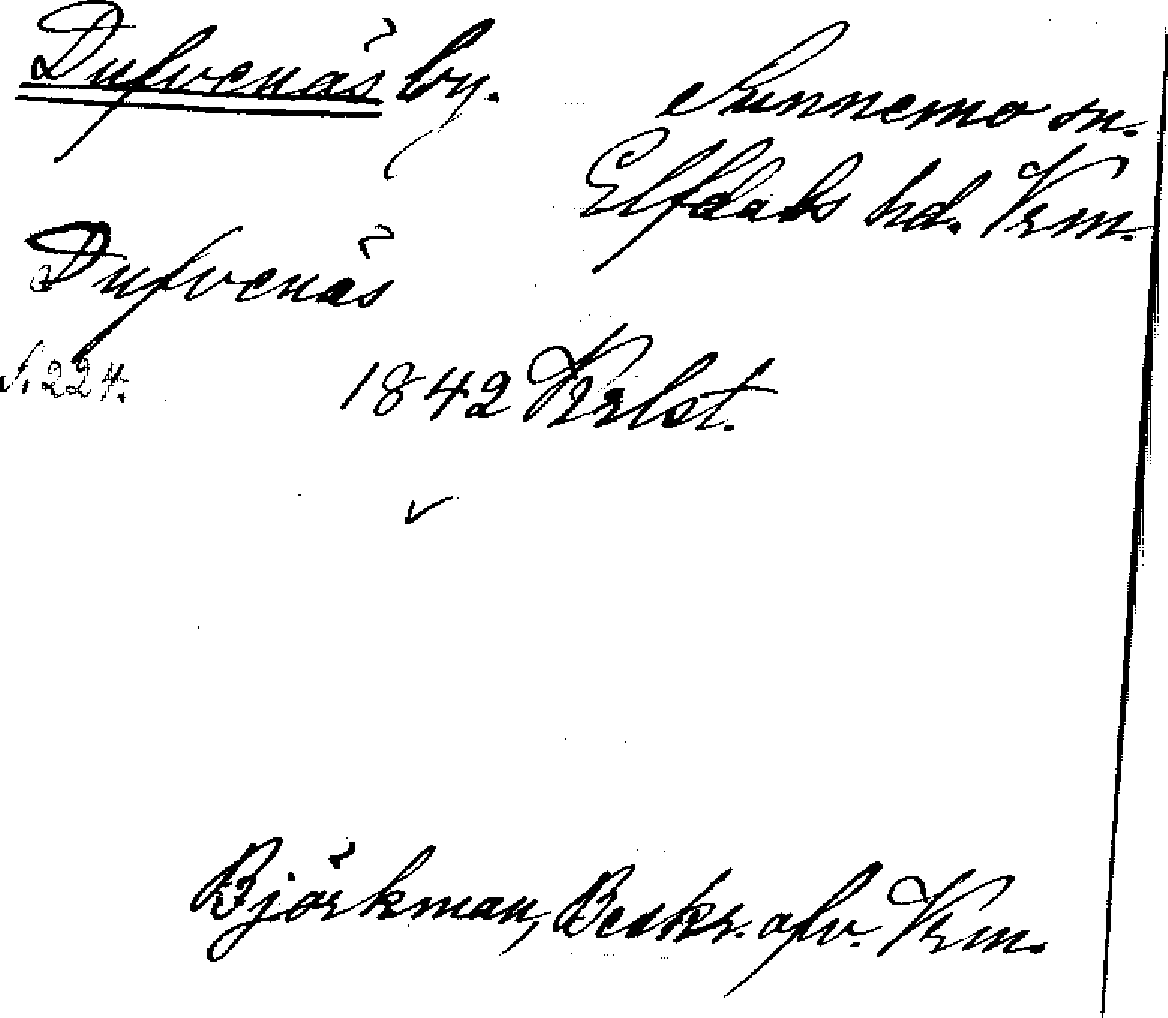 Dufvenäs by.
Sunnemo sn.
Elfdals hd. Vrm.
Dufvenäs
S. 224.
1842 Krlst.
Björkman, Beskr. öfv. Vrm.